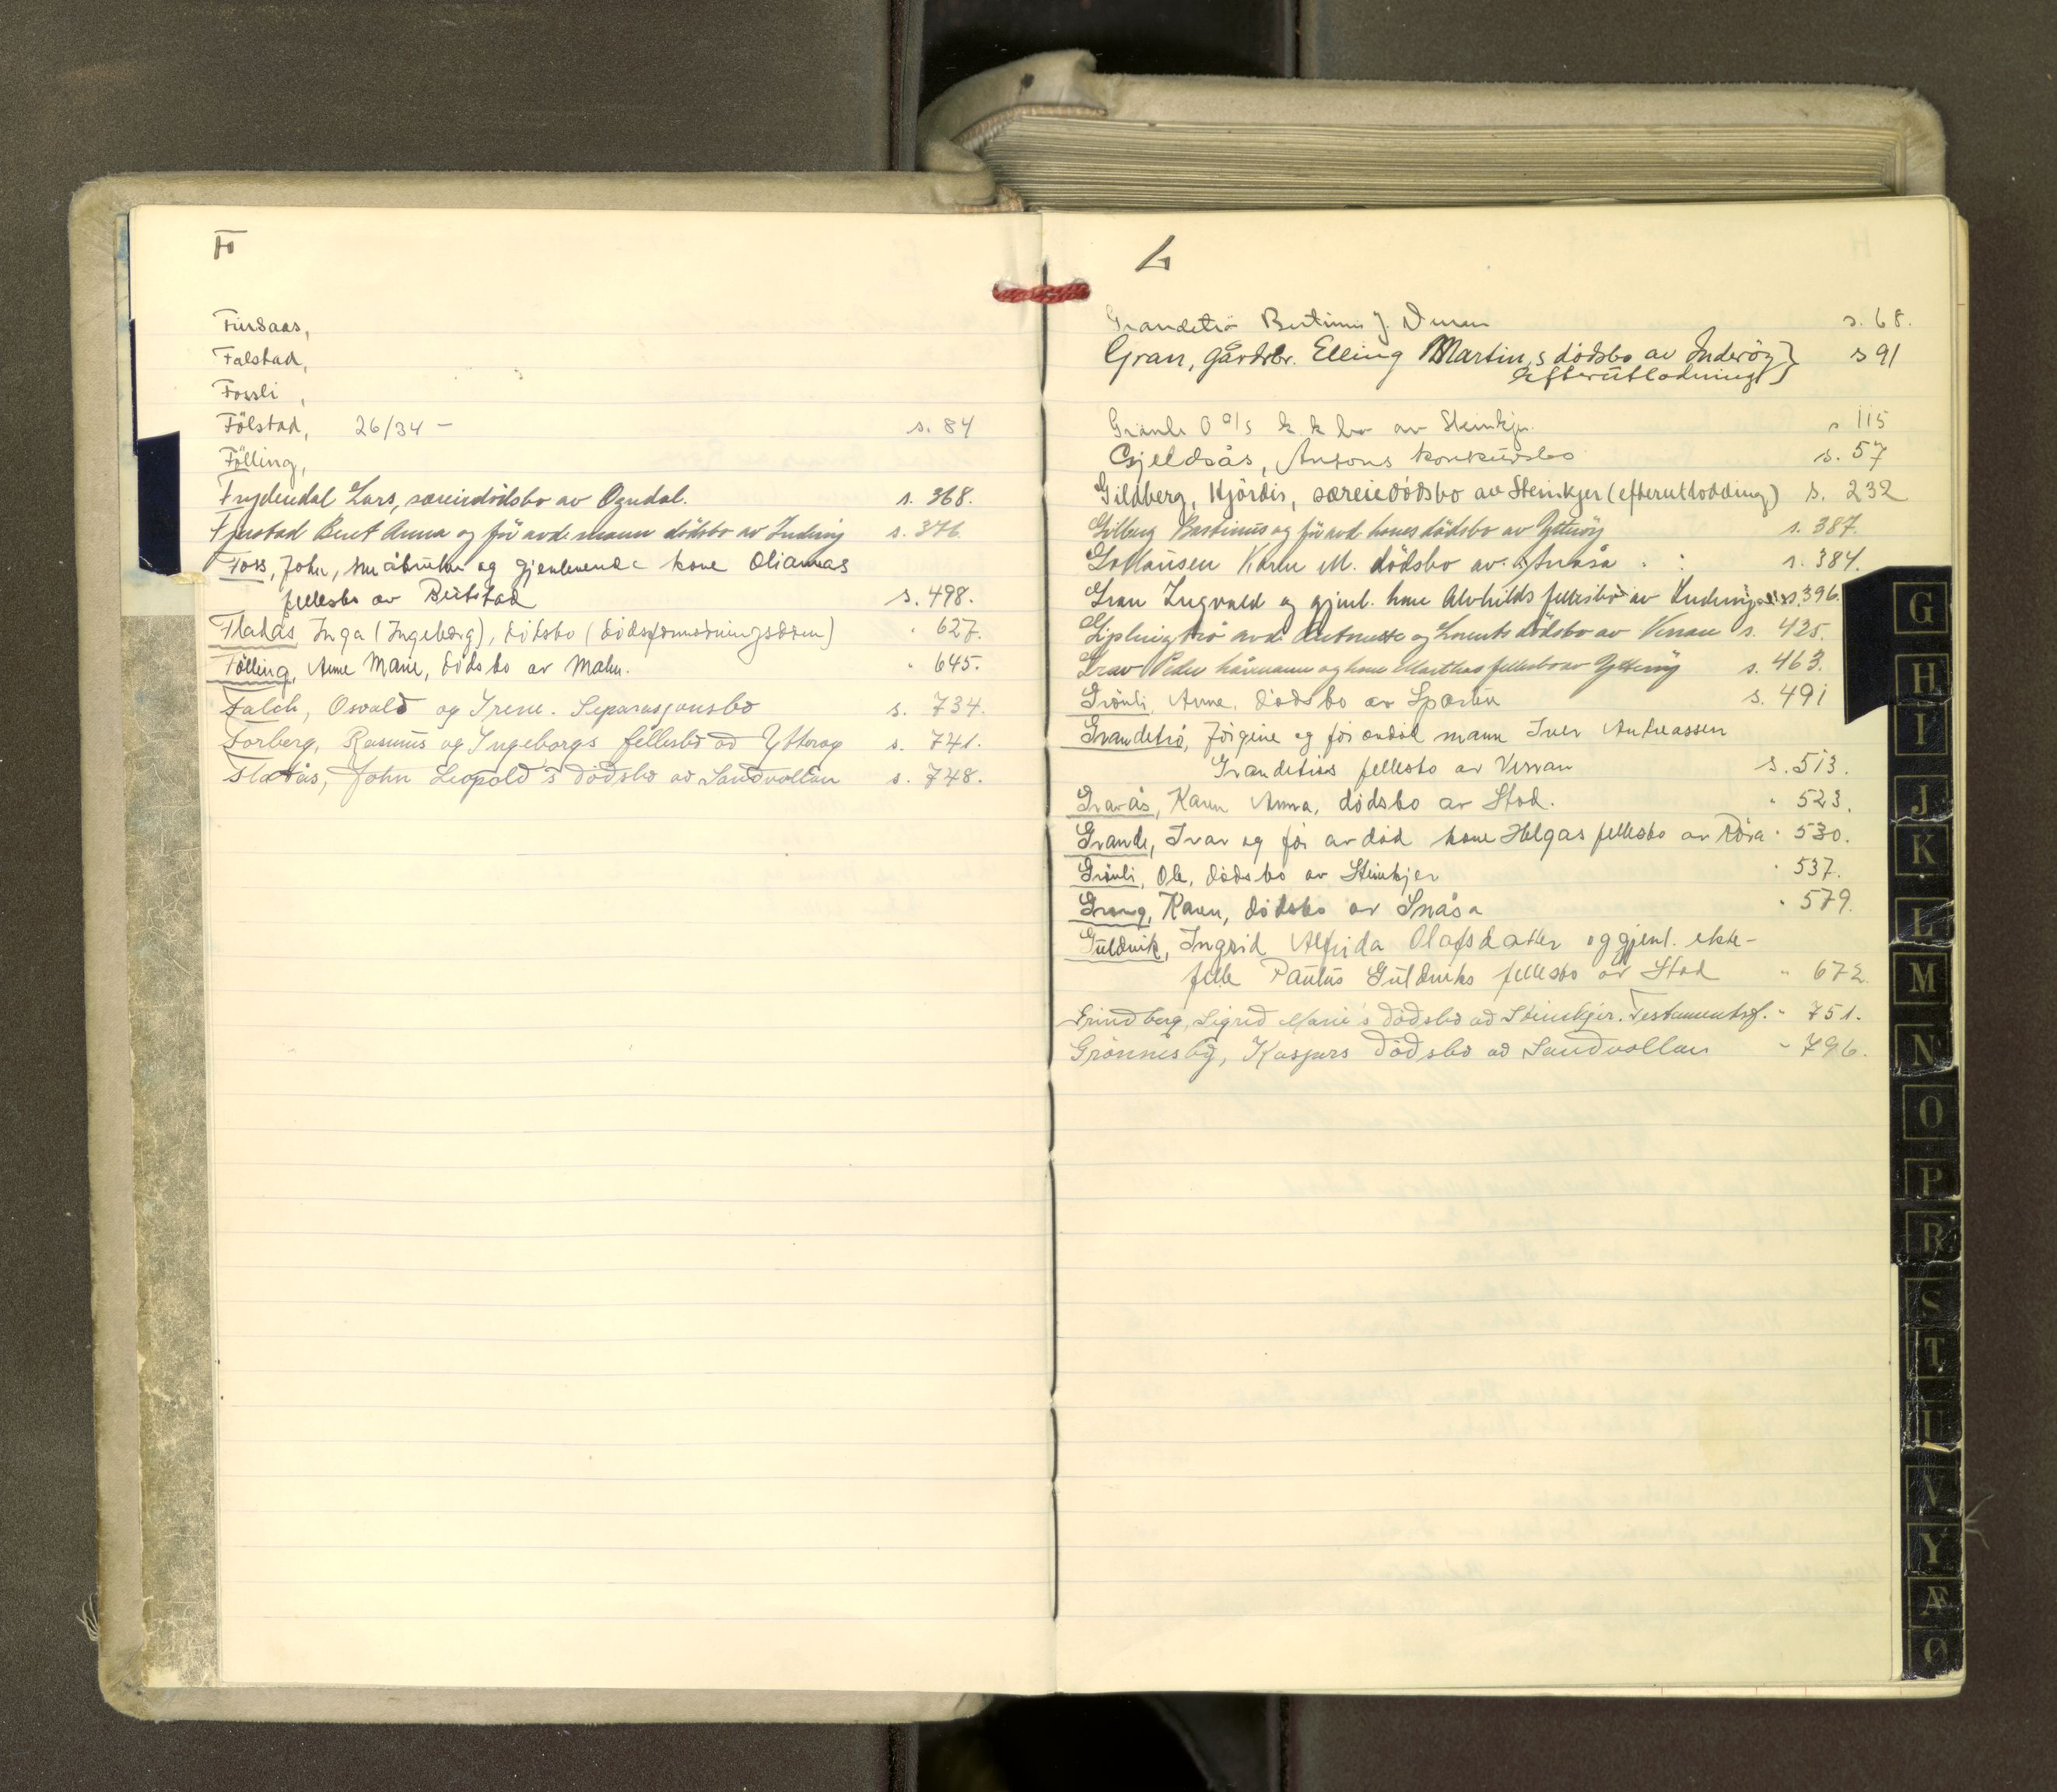 F
Furdaas,
Falstad,
Fossli ,
Fölstad, 26/34 — s. 84
Fölling,
Frydendal Lars, særeiedödsbo av Ogndal. s. 368.
Berit Anna og för avd. mann dödsbo av Inderöy s. 376.
Foss, John, småbruker og gjenlevende kone Oliannas
fellesbo av Beitstad s. 498.
Flatås Inga (Ingeborg), dödsbo (dödsformodningsdom) " 627.
Fölling, Anne Marie, dödsbo av Malm. " 645.
Falch, Osvald og Irene. Separasjonsbo s. 734.
Forberg, Rasmus og Ingeborgs fellesbo av Ytteröy s. 741.
Flatås, John Leopold's dödsbo av Sandvollan s. 748.
G
Grandetrö J. s. 68.
Gran, gårdbr. Elling Martin,s dödsbo av Inderöy } s 91
Efterutlodning }
Grönli O A/S k. k. bo av Steinkjer. " 115
Gjeldsås, Antons konkursbo s. 57
Gildberg, Hjördis, særeiedödsbo av Steinkjer (efterutlodding) s. 232
Gilberg og för avd kones dödsbo av Ytteröy s. 387.
Karen M. dödsbo av Snåsa s. 384.
Gran Ingvald og gjenl. kone Alvhilds fellesbo av Inderöy s. 396.
avd. og Lorents dödsbo av Verran s. 425.
Grav Peder og kone Marthas fellesbo av Ytteröy s. 463.
Grönli, Anne, dödsbo av Sparbu s. 491
Grandetrö, Jörgine og för avdöd mann Iver Andreassen
Grandetrös fellesbo av Verran s. 513.
Gravås, Karen Anna, dödsbo av Stod. " 523.
Grande, Ivar og för avdöd kone Helgas fellesbo av Röra " 530.
Grönli, Ole, dödsbo av Steinkjer " 537.
Grong, Karen, dödsbo av Snåsa " 579.
Guldvik, Ingrid Alfrida Olafsdatter og gjenl. ekte-
felle Paulus Guldviks fellesbo av Stod " 672.
Grindberg, Sigrid Marie's dödsbo av Steinkjer. Testamentsf. " 751.
Grönnesby, Kaspers dödsbo av Sandvollan " 796.
G
H
I
J
K
L
M
N
O
P
R
S
T
U
V
Y
Æ
Ø